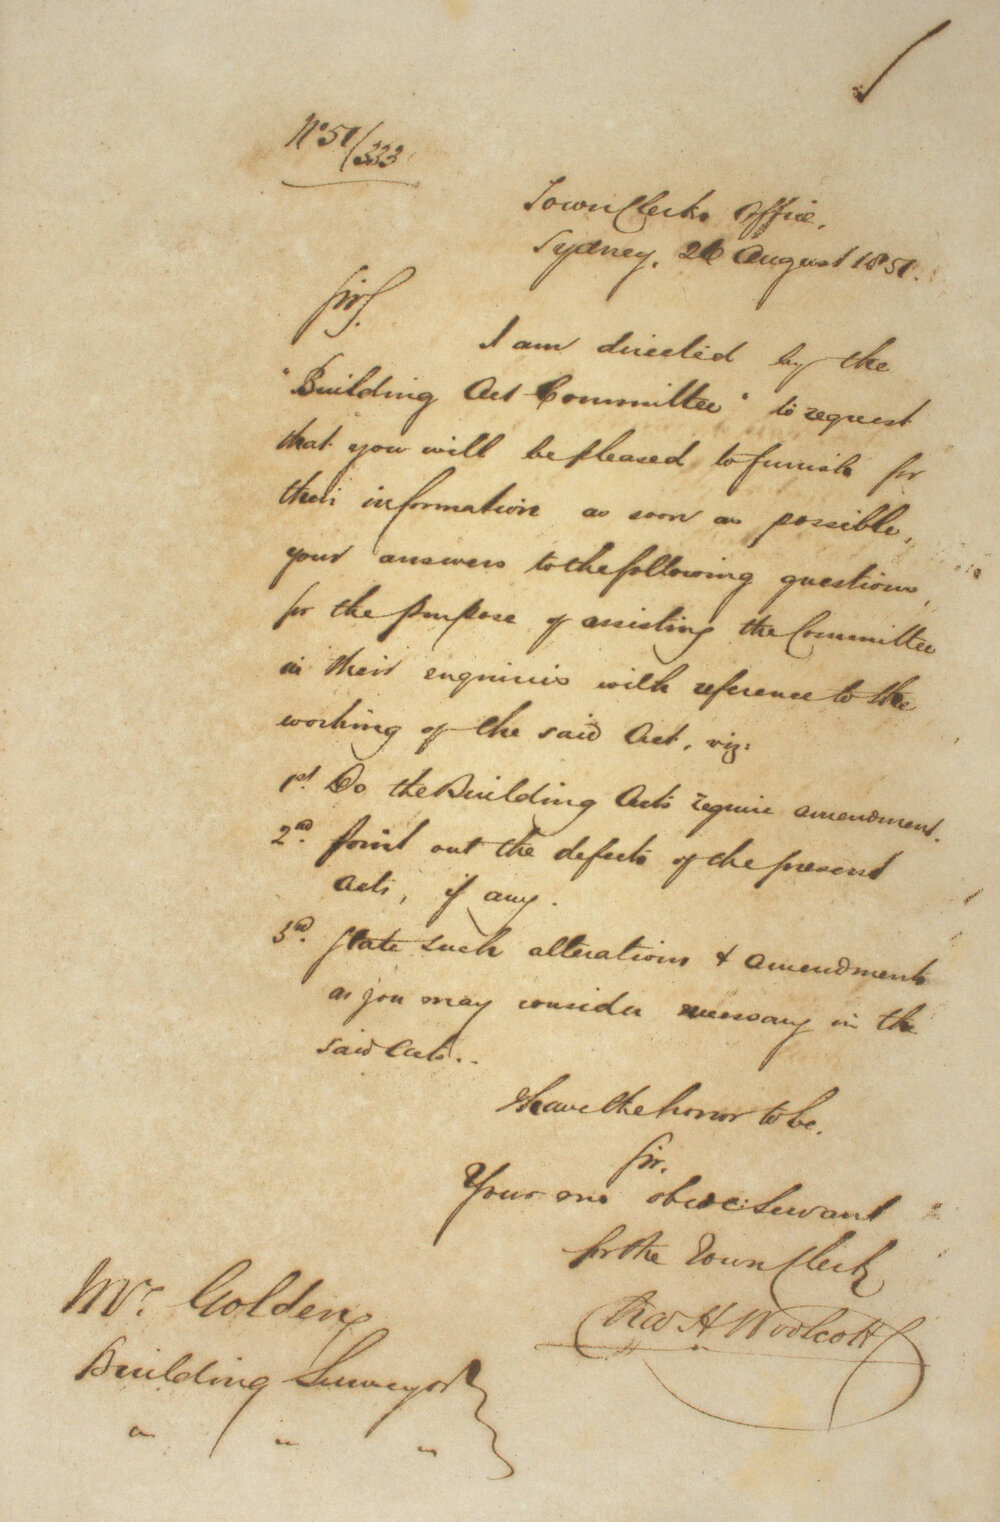 No 51/333
Town Clerks Office,
Sydney, 26 August 1851.
Sir,
I am directed by the
"Building Act Committee" to request
that you will be pleased to furnish for
their information as soon as possible,
your answers to the following questions,
for the purpose of assisting the Committee
in their enquiries with reference to the
working of the said Act, viz:
1st. Do the Building Acts require amendment.
2nd. Point out the defects of the present
Acts, if any.
3rd. State such alterations & amendments
as you may consider necessary in the
said Acts..
I have the honor to be.
Sir.
Your mo obed: Servant
for the Town Clerk
Chas H Woolcott
Mr. Golden
Building Surveyor
" " "